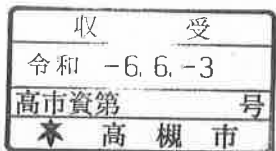 収 受
令和 -6.6.-3
高市資第 号
★ 高槻市